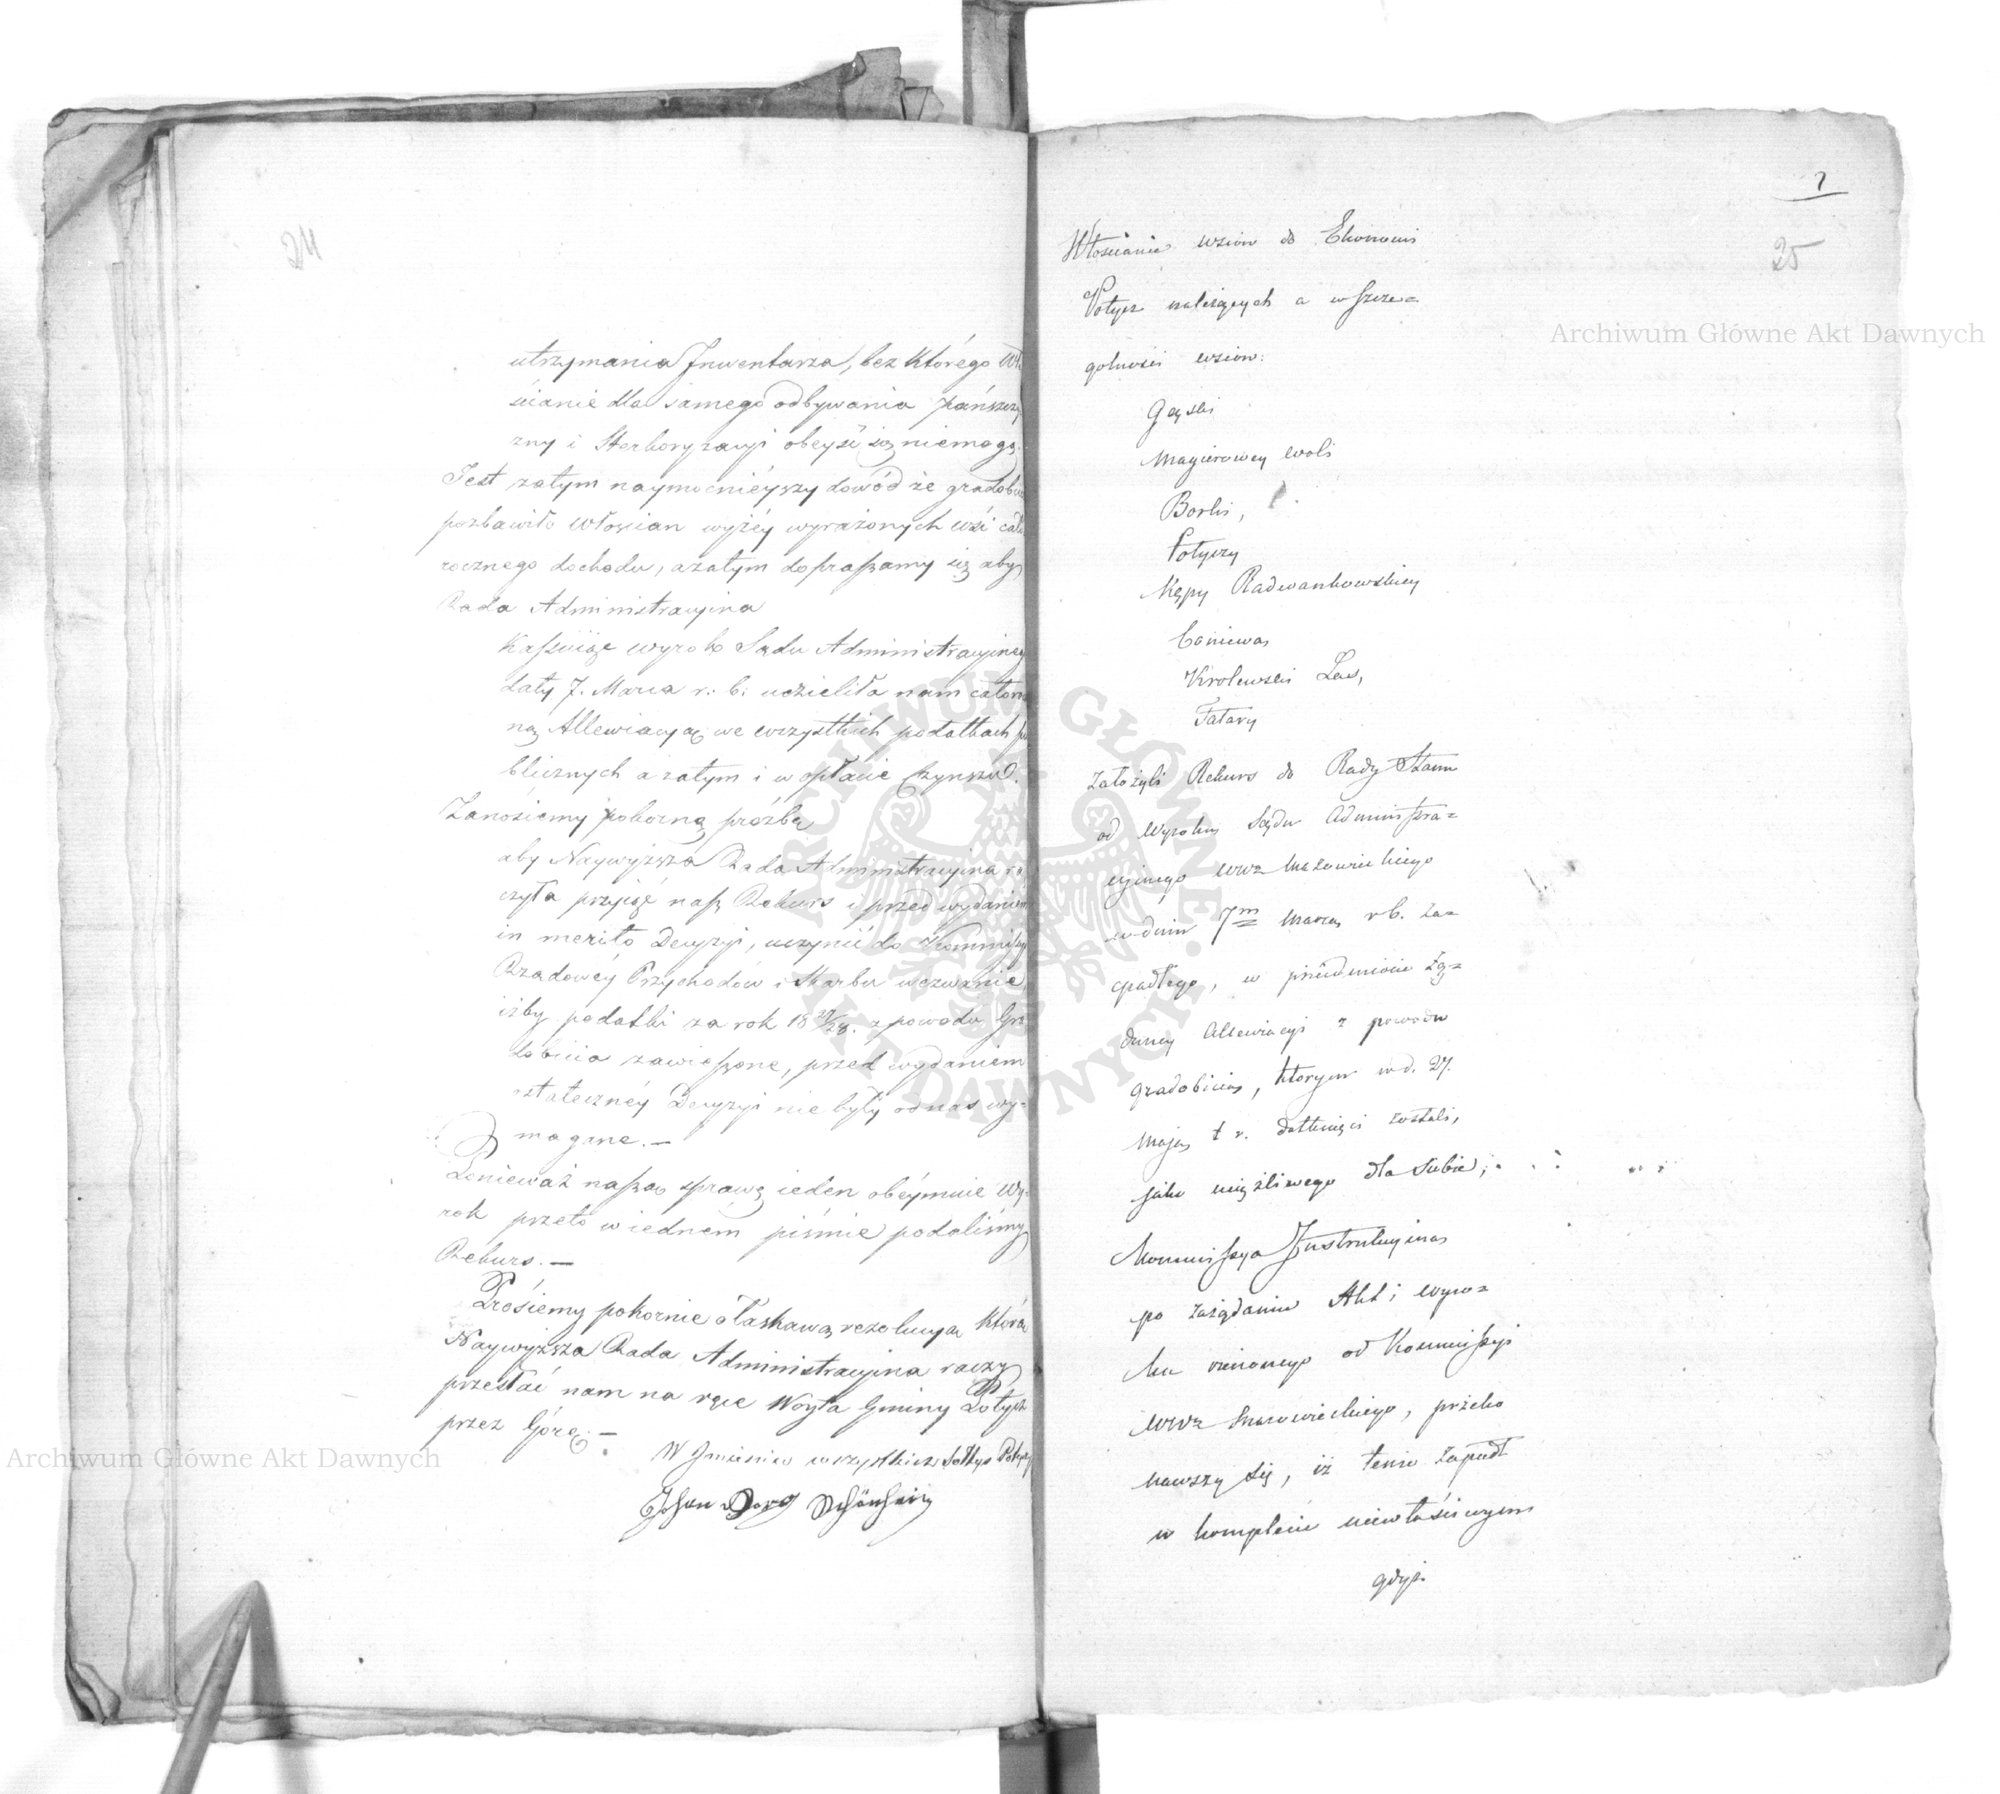 24
utrzymania Inwentarza, bez którego Wło
ścianie dla samego odbywania pańszczy
zny i obeyść się niemogą.
Jest zatym naymocnieyszy dowód że gradobi
pozbawiło Włościan wyżéy wyrażonych wsi cało
rocznego dochodu, azatym dopraszamy się aby
Rada Administracyina
Kassuiąc wyrok Sądu Administracyineg
daty 7. Marca r: b: udzieliła nam całoro
ną Allewiacyą we wszystkich podatkach pu
blicznych a zatym i w opłacie Czynszu.
Zanosiemy pokorną prożbę
aby Naywyższa Rada Administracyina ra
czyła przyiąć nasz Rekurs i przed wydaniem
in merito Decyzyi, uczynić do Kommissyi
Rządowéy Przychodów i Skarbu wezwanie,
iżby podatki za rok 18 27/28. z powodu Gra
dobicia zawieszone, przed wydaniem
ostatecznéy Decyzyi nie były od nas wy=
magane.—
Ponieważ naszą sprawę ieden obéymuie Wy=
rok przeto w iednem piśmie podaliśmy
Rekurs.—
Prosiemy pokornie o łaskawą rezolucyą którą
Naywyższa Rada Administracyina raczy
przesłać nam na ręce Woyta Gminy Potycz
przez Górę.—
W Imieniu wszystkich Sołtys Potyczy
Johan
7
25
Włościanie wsiów do Ekonomii
Potycz należących a w szcze=
golności wsiów:
Gąski
Magierowey woli
Borki,
Potyczy
Kępy Radwankowskiey
Coniewa
Krolewski Las,
Tatary
założyli Rekurs do Rady Stanu
od Wyroku Sądu Administra=
cyinego wwa Mazowieckiego
w dniu 7m Marca r b. za=
padłego, w przedmiocie żą=
daney Allewiacyi z powodu
gradobicia, którym w d. 27.
Maja t r. dotknięci zostali,
jako uciążliwego dla siebie;
Kommissya Instrukcyina
po zażądaniu Akt i wyro=
ku rzeczonego od Kommissyi
wwa Mazowieckiego, przeko
nawszy się, iż tenże zapadł
w komplecie niewłaściwym
gdyż
Archiwum Główne Akt Dawnych
Archiwum Główne Akt Dawnych
ARCHIWUM GŁÓWNE AKT DAWNYCH